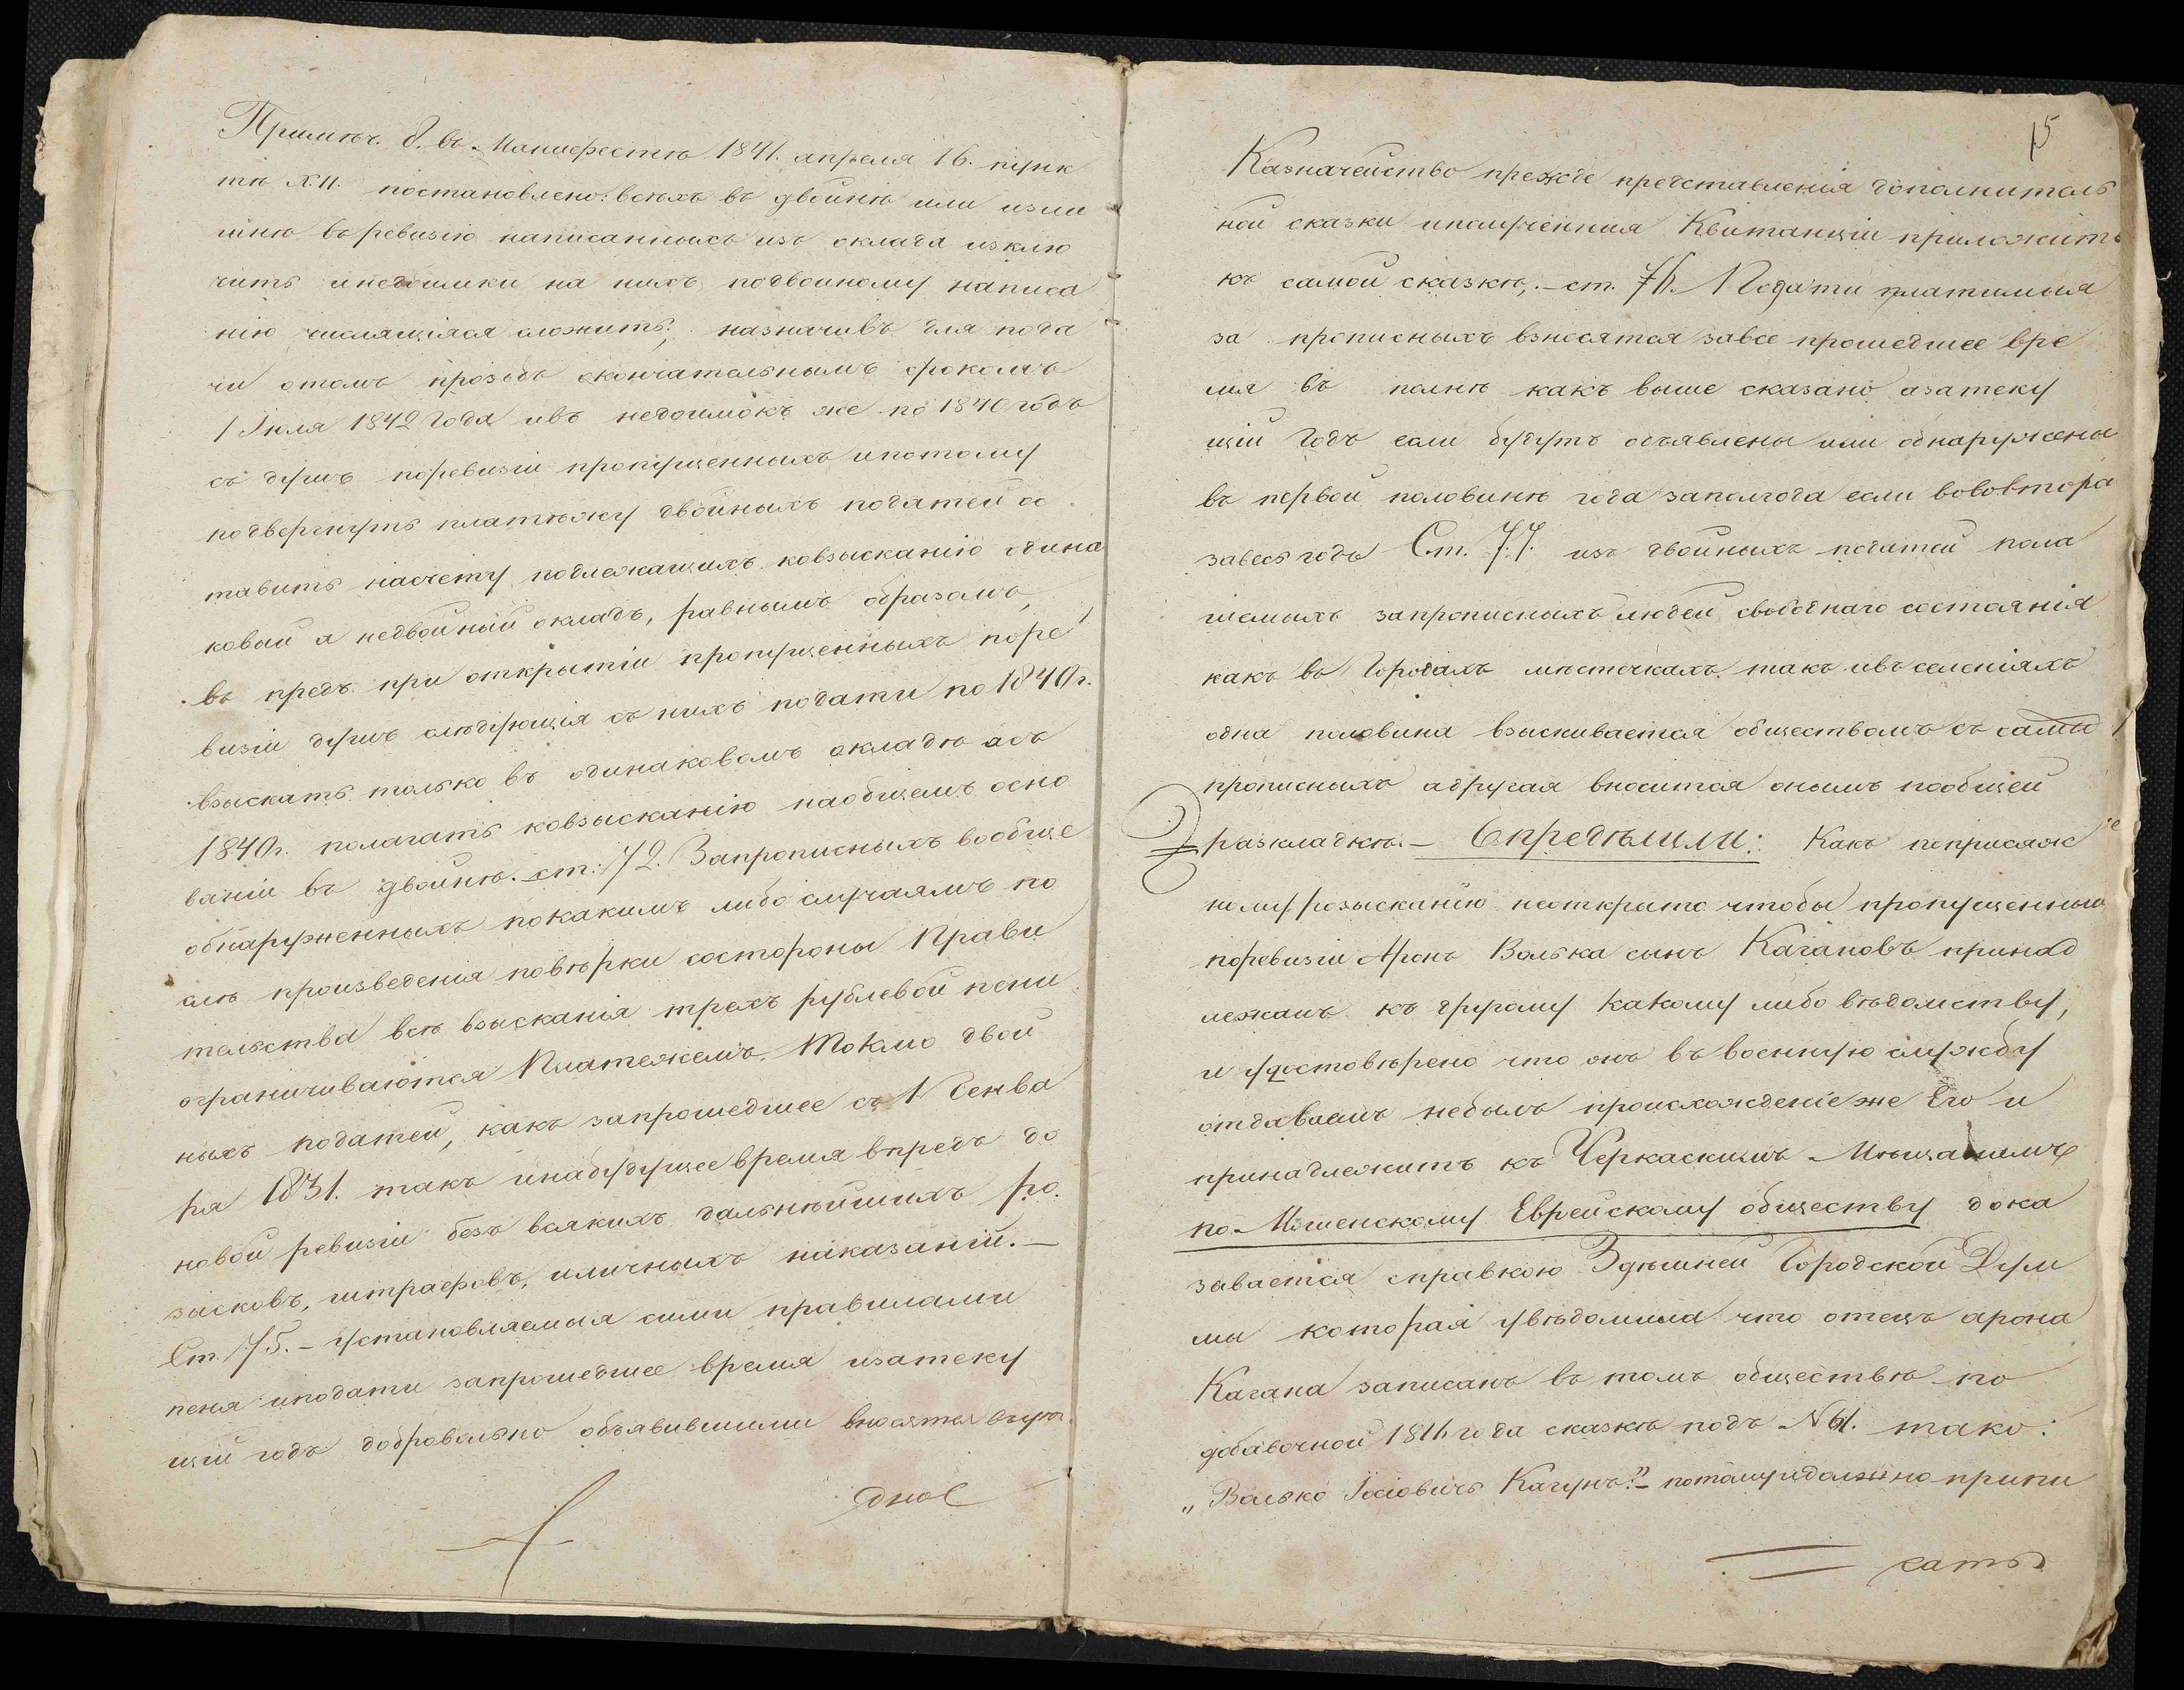 Примѣч. 8. въ Манифестѣ 1841. апреля 16. пунк
тѣ XII. постановлено: всѣхъ въ двойнѣ или изли
шнѣ въ ревизію написанныхъ изъ оклада исклю
чить инедоимки на нихъ подвоиному написа
нію числящіяся сложить; назначивъ для пода
чи отомъ прозьбъ окончательнымъ срокомъ
1 Іюля 1842 года ивъ недоимокъ же по 1840 годъ
съ душъ поревизіи пропущенныхъ ипотому
подвергнутъ платѣжу двойныхъ податей ос
тавить насчету подлежащихъ ковзысканію одина
ковый а недвойный окладъ, равнымъ образомъ,
въ предъ при открытіи пропущенныхъ поре
визіи душъ слѣдующія съ нихъ подати по 1840 г.
взыскать только въ одинаковомъ окладѣ асъ
1840 г. полагать ковзысканію наобщемъ осно
ваніи въ двойнѣ. ст: 72. Запрописныхъ вообще
обнаруженныхъ покакимъ либо случаямъ по
слѣ произведенія повѣрки состороны Прави
тельства всѣ взысканія трехъ рублевой пени
ограничиваются Платежемъ токмо двой
ныхъ податей, какъ запрошедшее съ 1 Генва
ря 1831. такъ инабудущее время впредь до
новой ревизіи безъ всякихъ дальнѣйшихъ ро
зысковъ, штрафовъ, иличныхъ наказаній. —
Ст. 75. — установляемыя сими правилами
пеня иподати запрошедшее время изатеку
щій годъ добровольно объявившими вносятся въуѣз.
дное
15
Казначейство прежде представленія дополнитель
ной сказки иполученная Квитанціи приложить
къ самой сказкѣ; — ст. 76. Подати платимыя
за прописныхъ взносятся завсе прошедшее вре
мя въ полнѣ какъ выше сказано азатеку
щій годъ если будутъ объявлены или обнаружены
въ первой половинѣ года заполгода если вовтора
завесь годъ Ст. 77. изъ двойныхъ податей пола
гаемыхъ запрописныхъ людей свободнаго состоянія
какъ въ Городахъ мѣстечкахъ такъ ивъ селеніяхъ
одна половина взыскивается обществомъ съ самы
прописныхъ адругая вносится онымъ пообщей
разкладкѣ. — Опредѣлили: Какъ поприсяж
ному розысканію неоткрыто чтобы пропущенный
поревизіи Аронъ Волька сынъ Кагановъ принад
лежалъ къ другому какому либо вѣдомству,
и удостовѣрено что онъ въ военную службу
отдаваемъ небылъ происхожденіе же Его и
принадлежитъ къ Черкаскимъ Мѣщанамъ
по Мошенскому Еврейскому обществу дока
зывается справкою Здѣшней Городской Дум
мы которая увѣдомила что отецъ арона
Кагана записанъ въ томъ обществѣ по
добавочной 1811 года сказкѣ подъ № 61. тако:
„Волько Іосіовичъ Кагунъ." — потомудолжно припи
сать